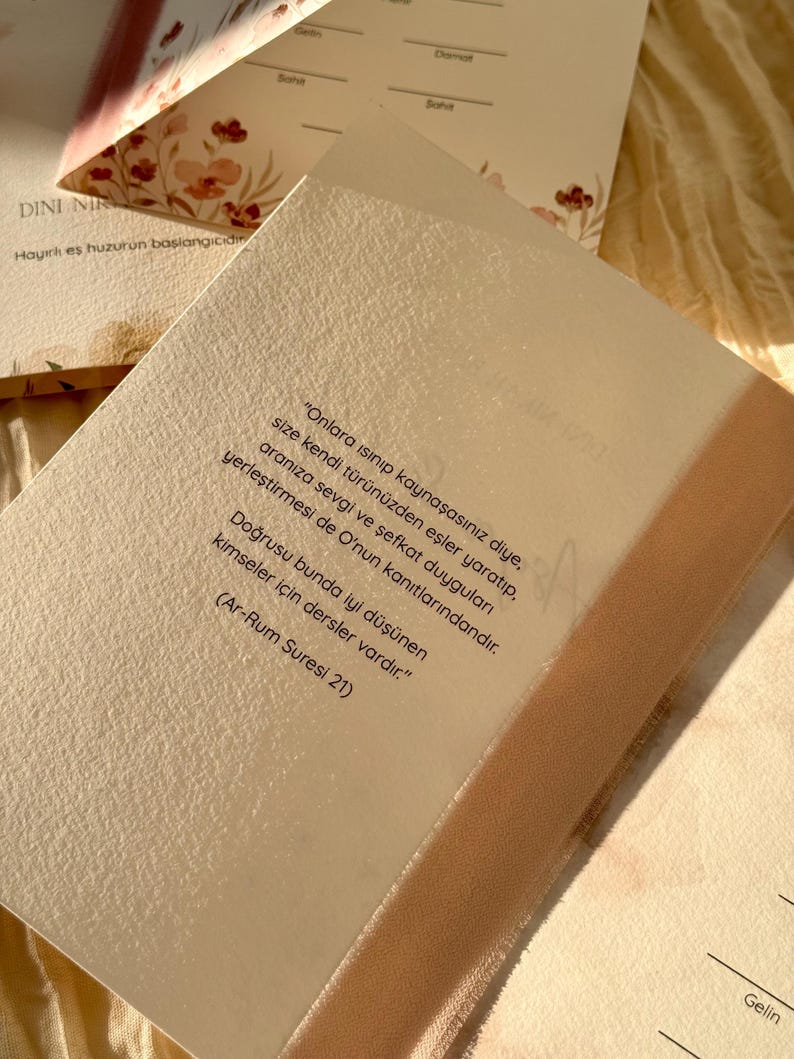 Gelin
Damat
Şahit
Şahit
DINI
Hayırlı eş huzurun başlangıcıdır
"Onlara ısınıp kaynaşasınız diye,
size kendi türünüzden eşler yaratıp,
aranıza sevgi ve şefkat duyguları
yerleştirmesi de O'nun kanıtlarındandır.
Doğrusu bunda iyi düşünen
kimseler için dersler vardır."
(Ar-Rum Suresi 21)
Gelin